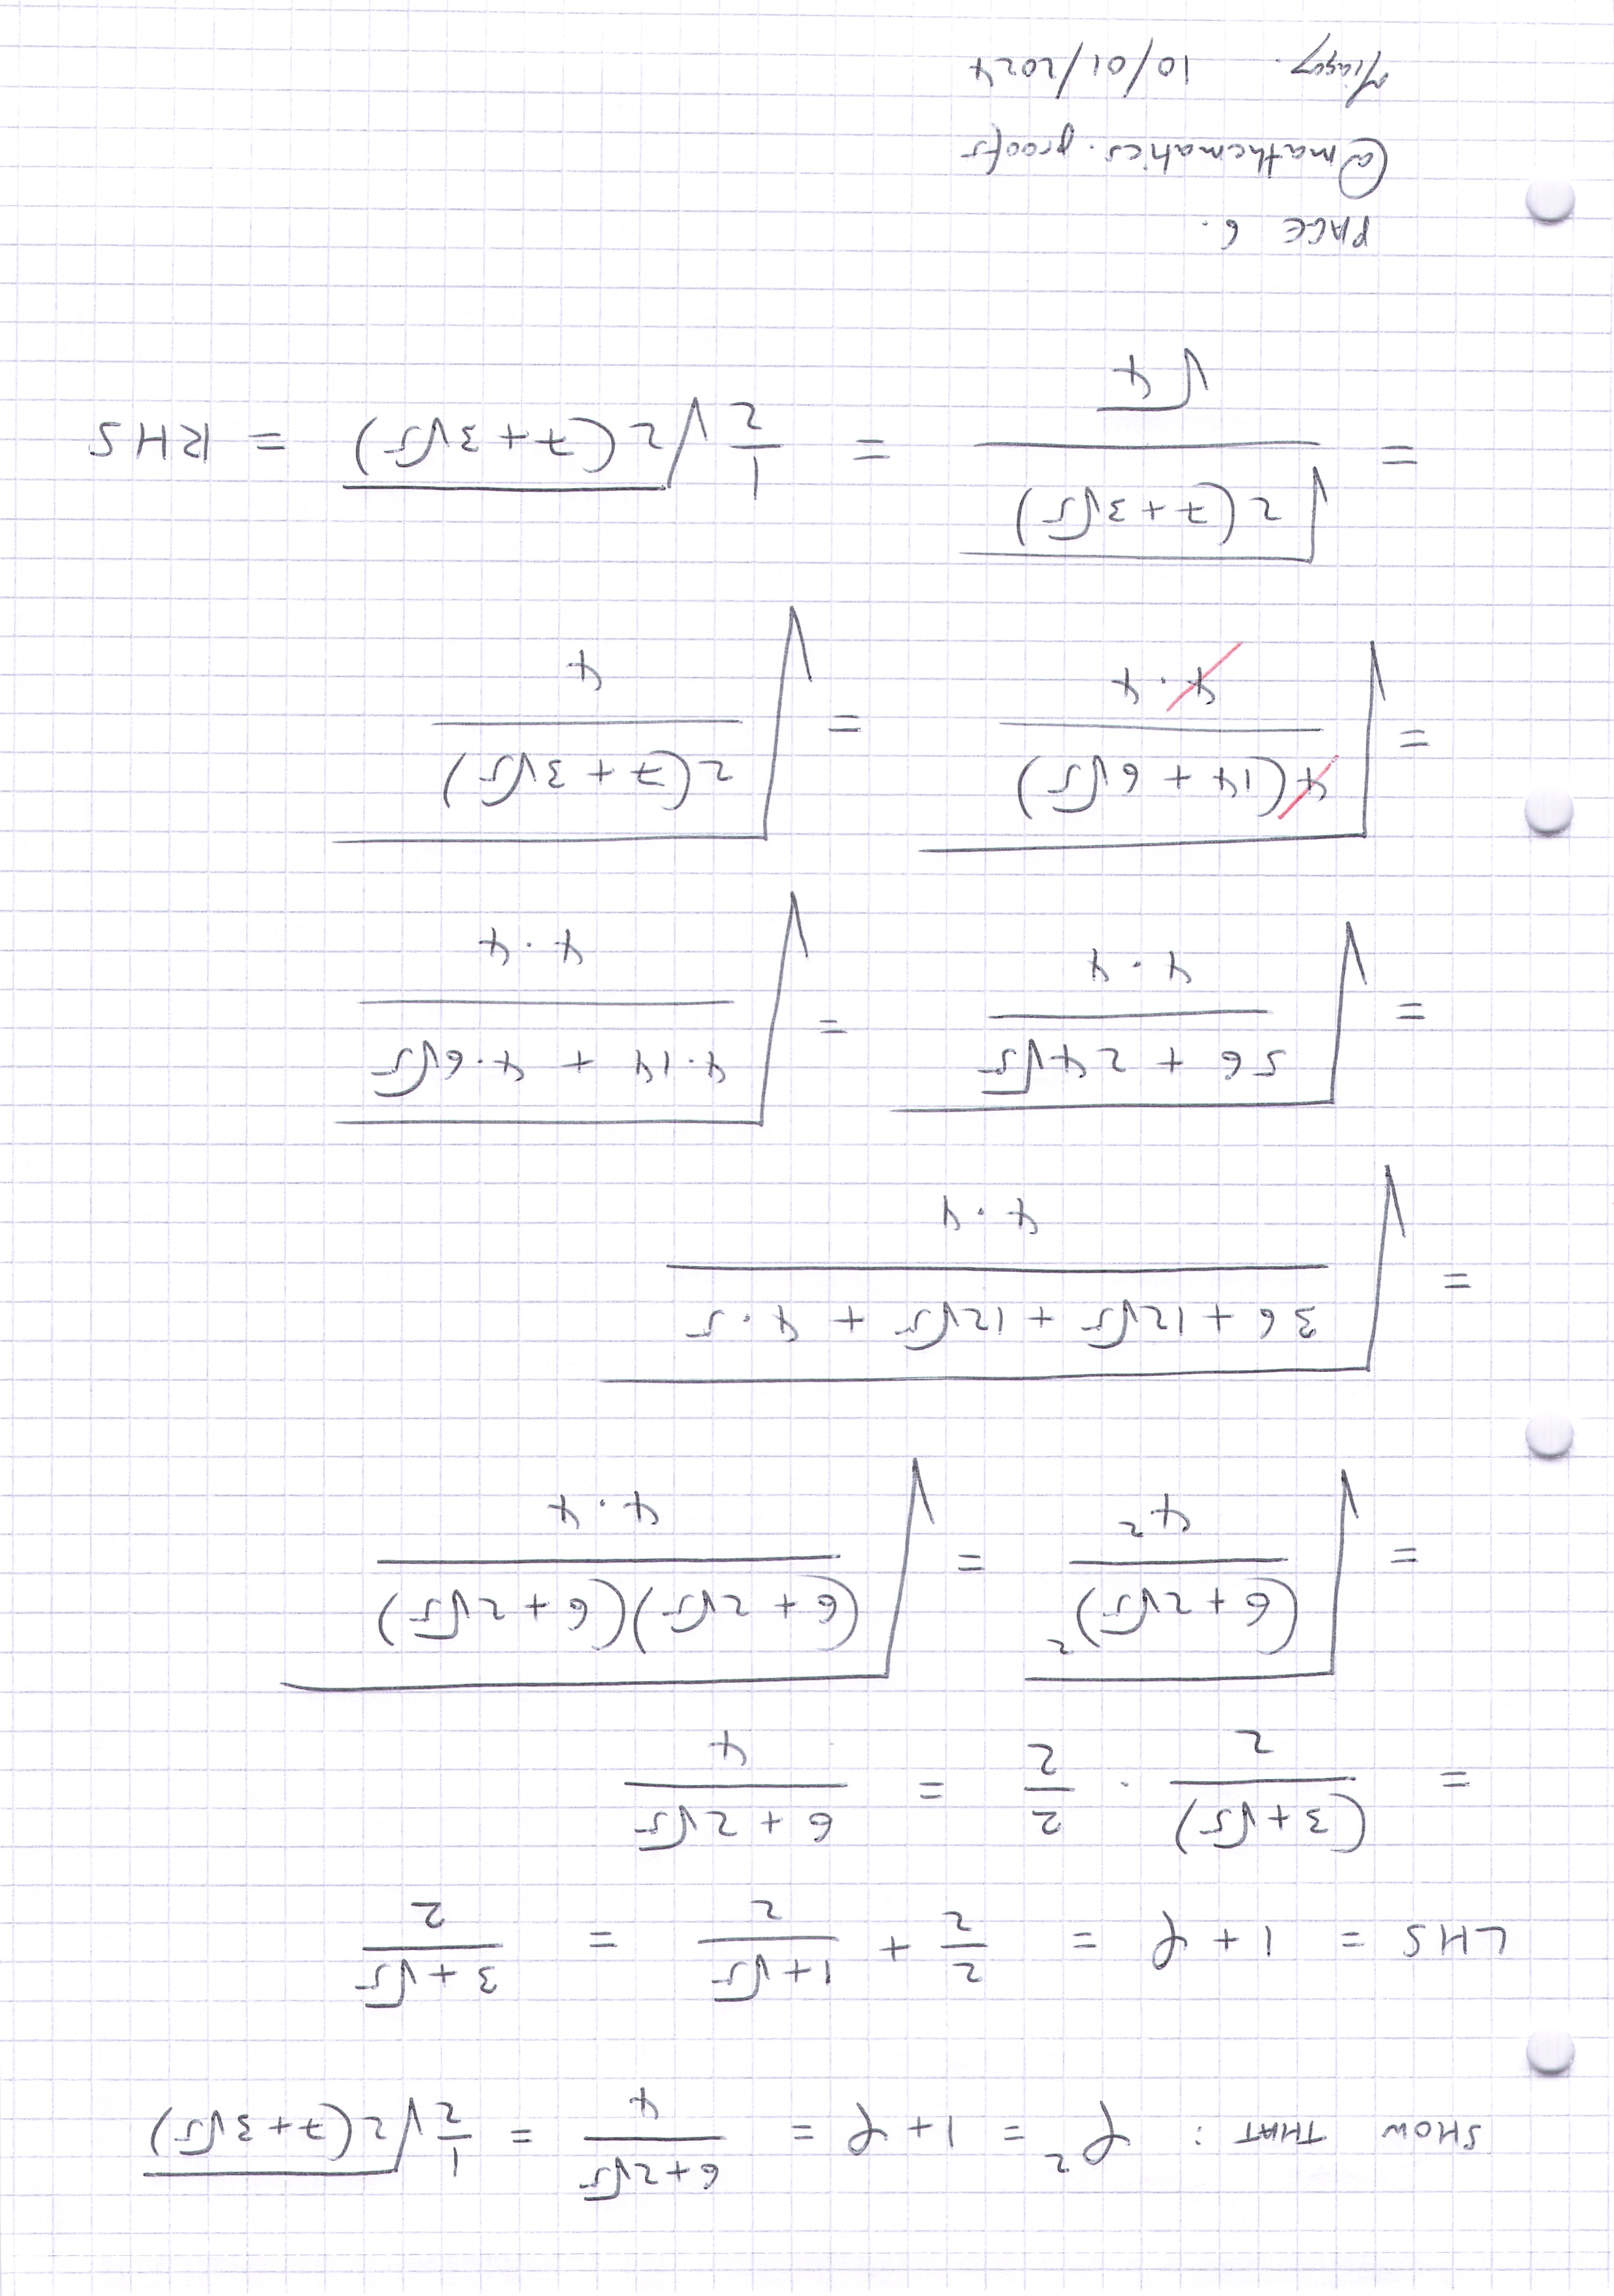 SHOW THAT: φ² = 1 + φ = (6 + 2√5)/4 = 1/2 √(2(7 + 3√5))
LHS = 1 + φ = 2/2 + (1 + √5)/2 = (3 + √5)/2
= (3 + √5)/2 · 2/2 = (6 + 2√5)/4
= √((6 + 2√5)²/4²) = √((6 + 2√5)(6 + 2√5)/(4 . 4))
= √((36 + 12√5 + 12√5 + 4 . 5)/(4 . 4))
= √((56 + 24√5)/(4 . 4)) = √((4.14 + 4.6√5)/(4 . 4))
= √(4(14 + 6√5)/(4 . 4)) = √(2(7 + 3√5)/4)
= √(2(7 + 3√5))/√4 = 1/2 √(2(7 + 3√5)) = RHS
PAGE 6.
@mathematics.proofs
10/01/2024